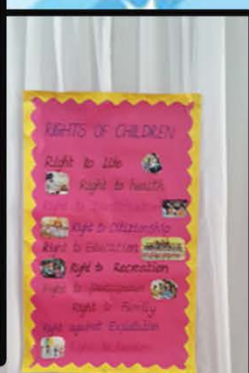 RIGHTS OF CHILDREN
Right to Life
Right to health
Right to
Right to Citizenship
Right to Education
Right to Recreation
Right to
Right to Family
Right against Exploitation
Right to